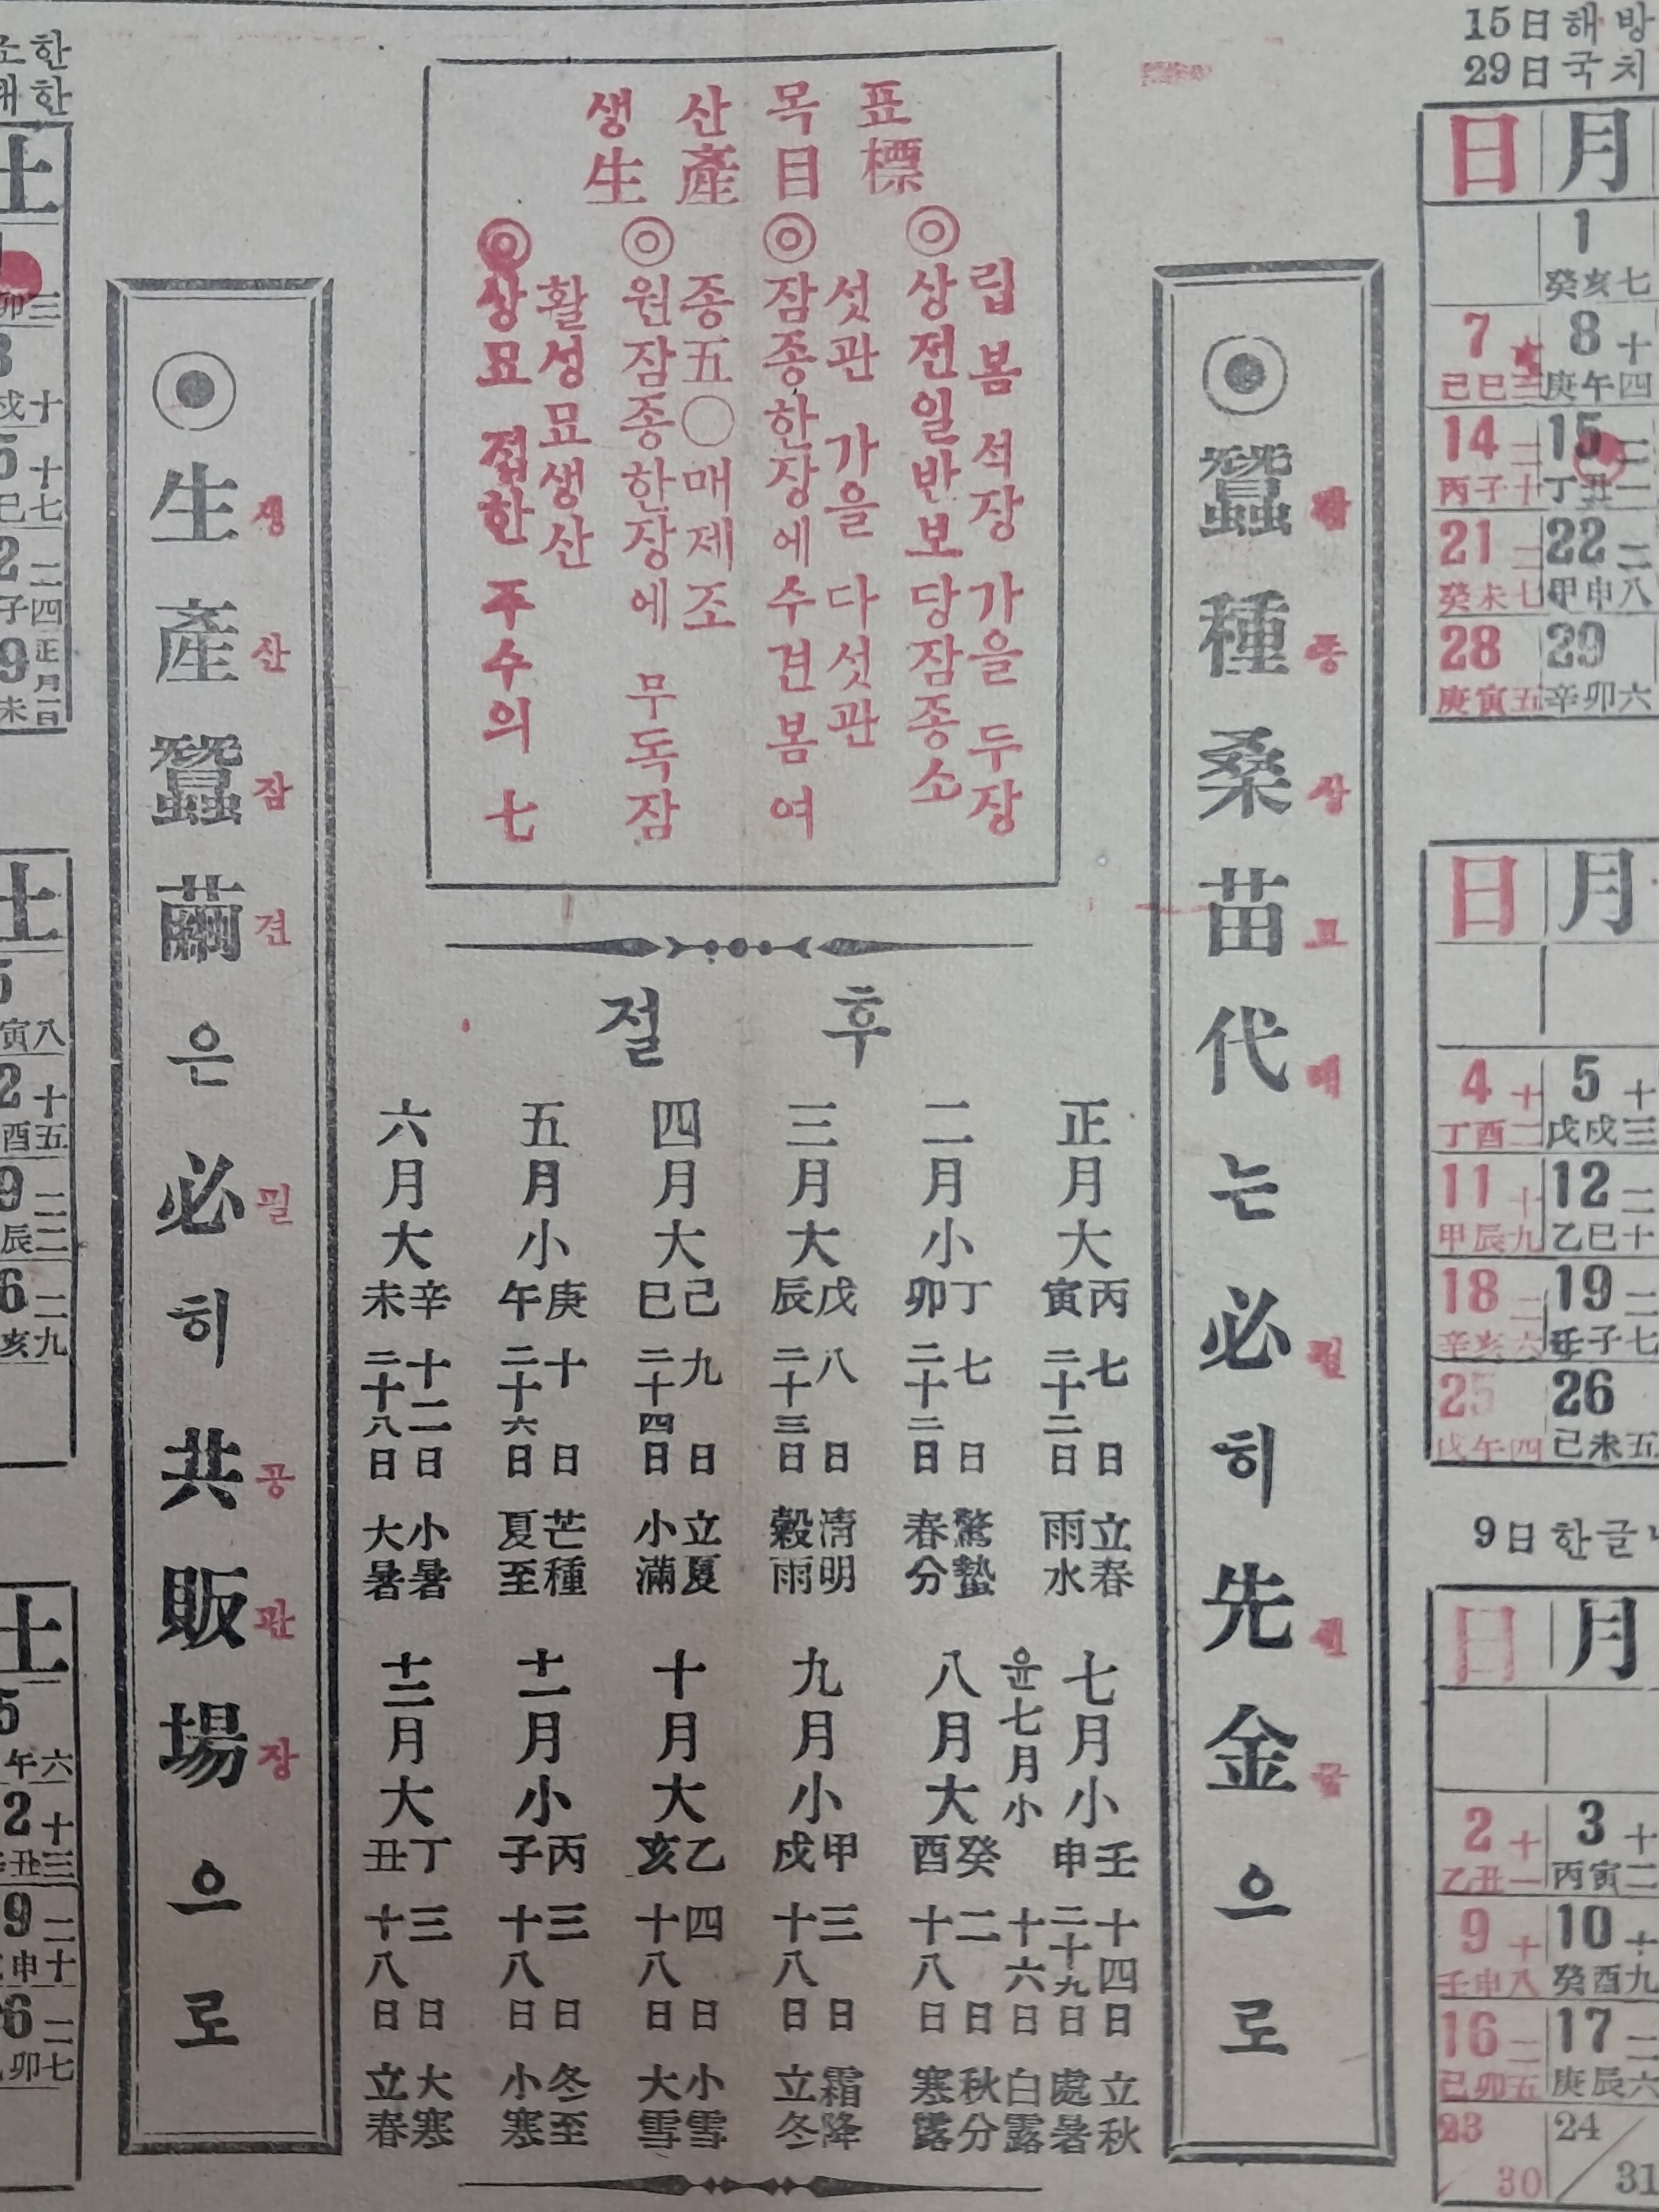 15日 해 방
29日 국 치
日 月
1
癸亥七
7 8 十
己巳三 庚午四
14 二 15 二
丙子十 丁丑一
21 二 22 二
癸未七 甲申八
28 29
庚寅五 辛卯六
日 月
4 十 5 十
丁酉二 戊戌三
11 十 12 二
甲辰九 乙巳十
18 二 19 二
辛亥六 壬子七
25 26
戊午四 己未五
9日 한 글
日 月
2 十 3 十
乙丑一 丙寅二
9 十 10 十
壬申八 癸酉九
16 二 17 二
己卯五 庚辰六
23 24
30 31
◎蠶種桑苗代는必히先金으로
잠종상묘대 필 선금
생산목표
生產目標
◎상전일반보당잠종소
립봄 석장 가을 두장
◎잠종한장에수견봄여
섯관 가을 다섯관
◎원잠종한장에 무독잠
종五〇매제조
◎상묘 접한 주수의 七
활성묘생산
절후
正月大 丙寅 七日立春 二十二日雨水
二月小 丁卯 七日驚蟄 二十二日春分
三月大 戊辰 八日淸明 二十三日穀雨
四月大 己巳 九日立夏 二十四日小滿
五月小 庚午 十日芒種 二十六日夏至
六月大 辛未 十二日小暑 二十八日大暑
七月小 壬申 十四日立秋 二十九日處暑
윤七月小 十六日白露
八月大 癸酉 二日秋分 十八日寒露
九月小 甲戌 三日霜降 十八日立冬
十月大 乙亥 四日小雪 十八日大雪
十一月小 丙子 三日冬至 十八日小寒
十二月大 丁丑 三日大寒 十八日立春
◎生產蠶繭은必히共販場으로
생산잠견 필 공판장
소한
대한
土
卯三
戌十
5 十
巳七
2 二
子四
9 正月一日
未
土
5
寅八
2 十
酉五
9 二
辰二
6 二
亥九
土
5
午六
2 十
丑三
9 二
申十
6 二
卯七